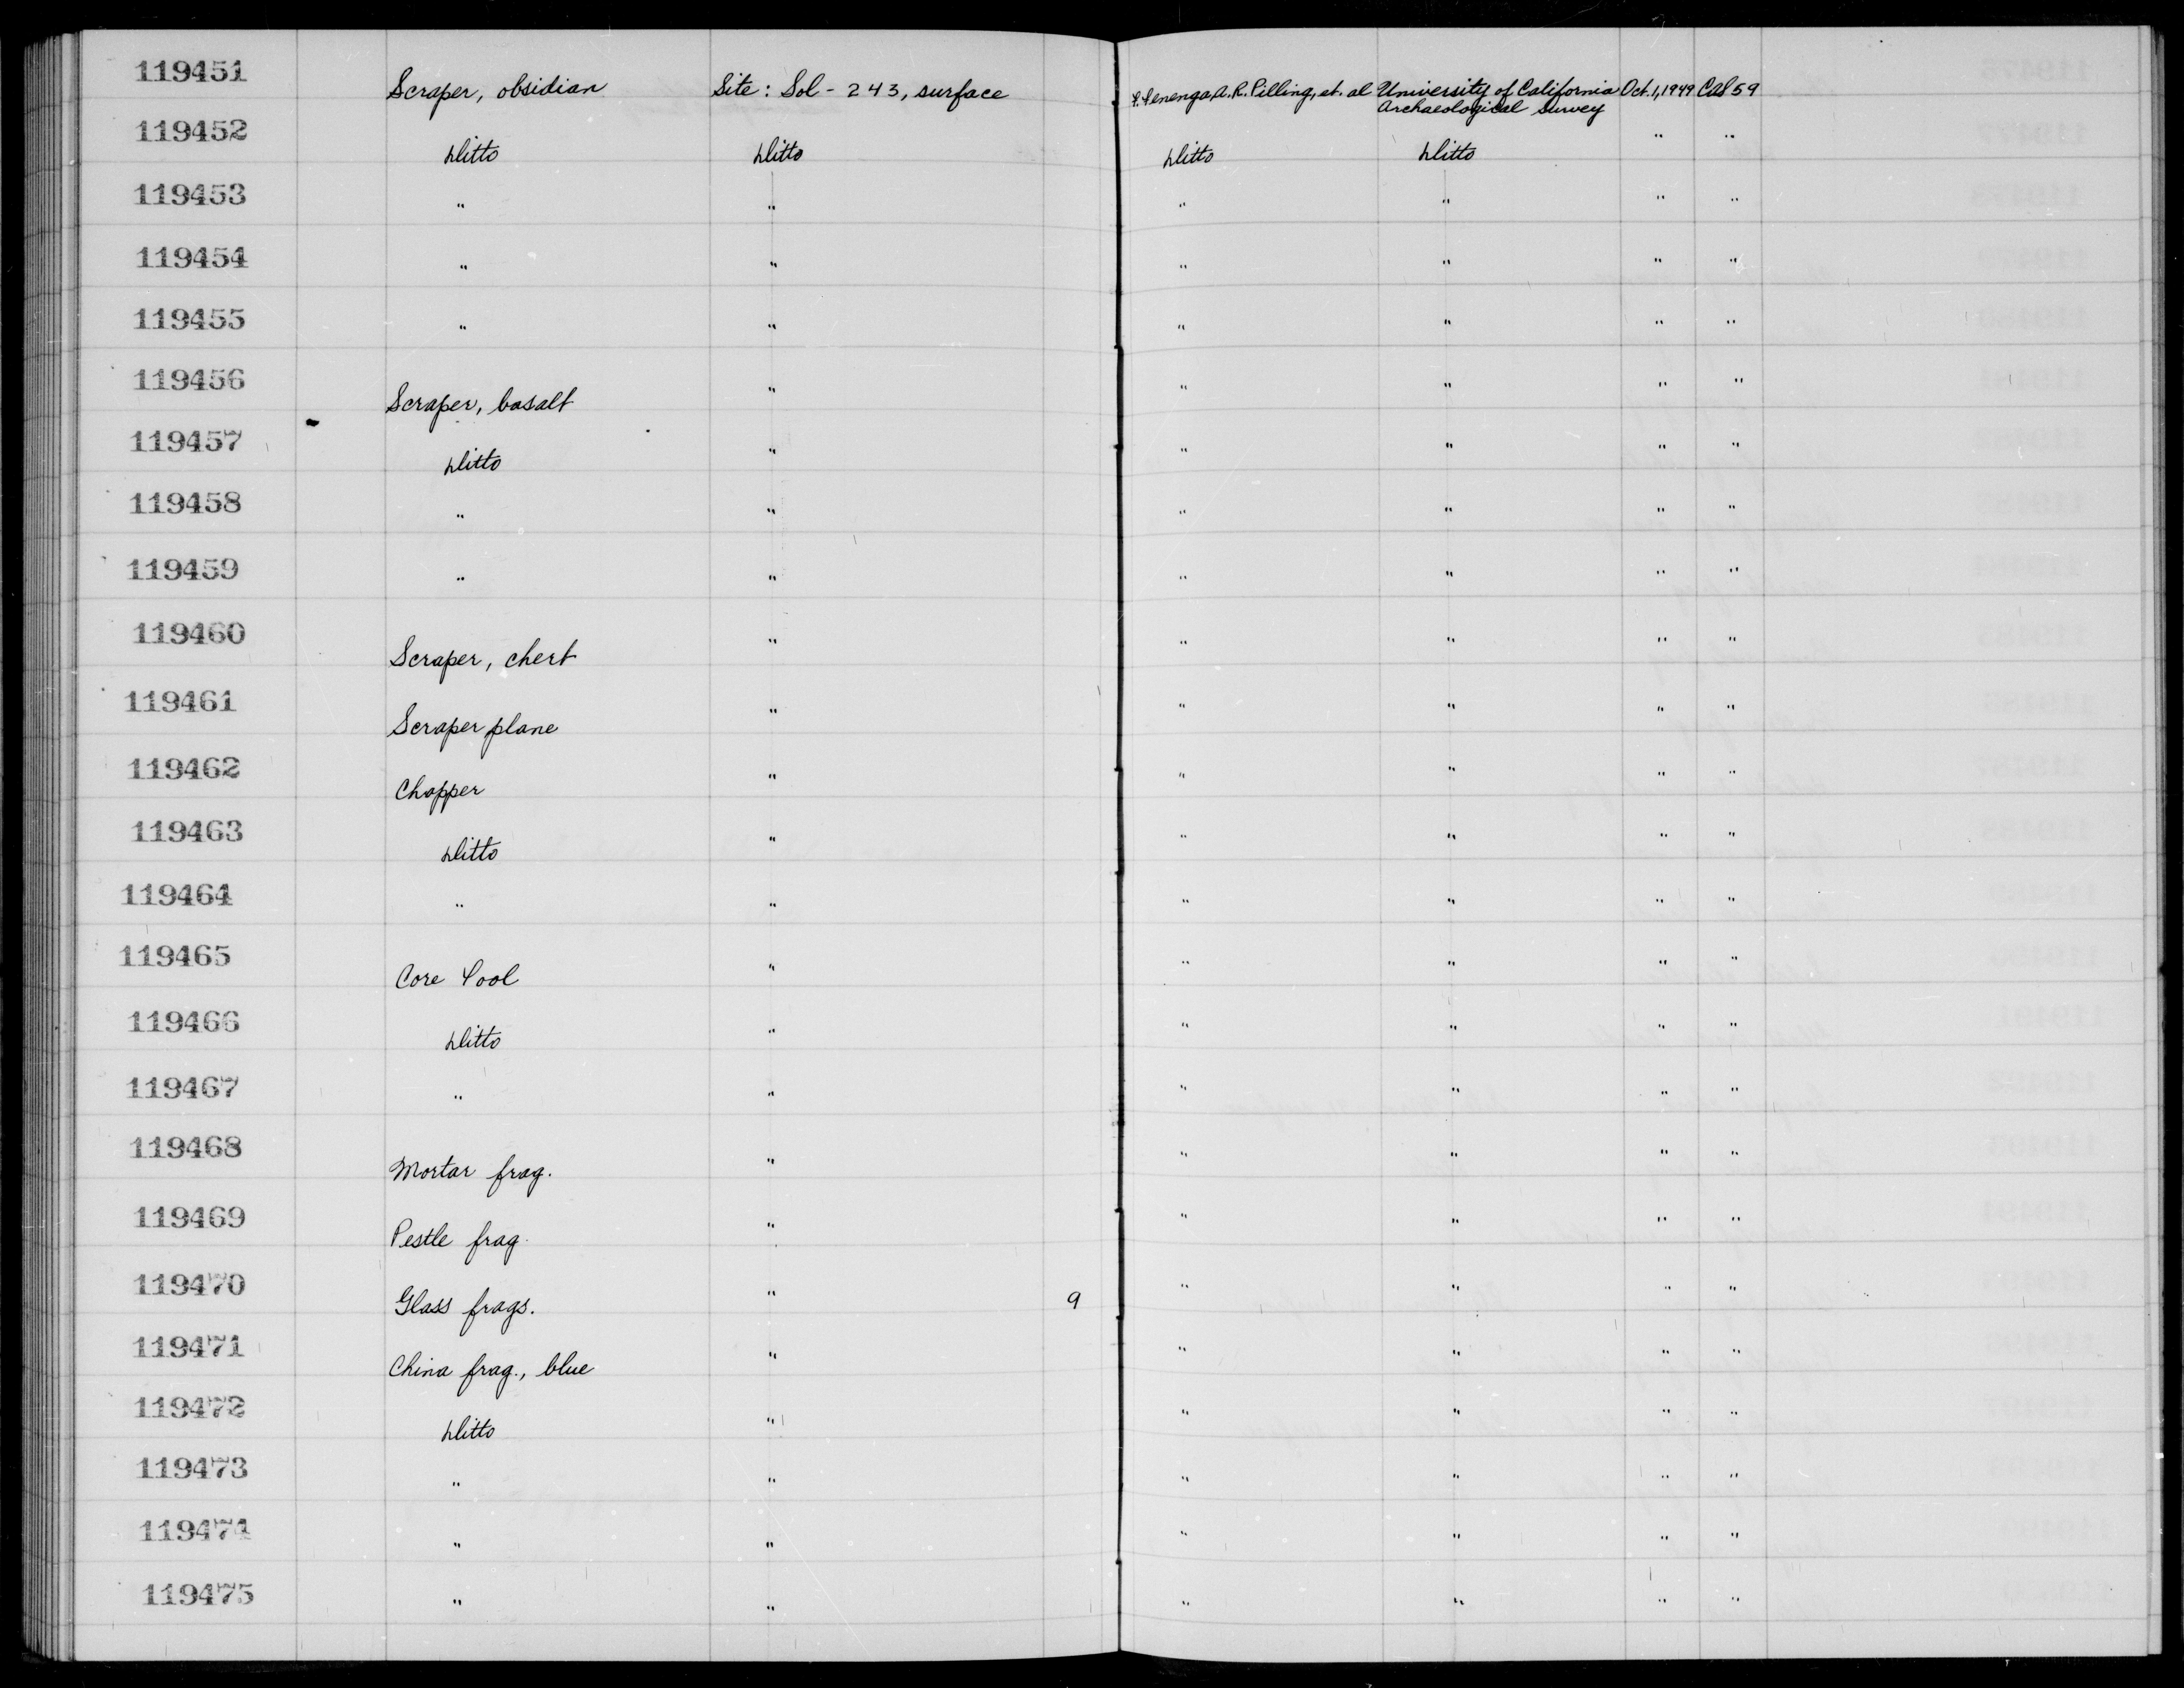 119451 Scraper, obsidian Site: Sol-243, surface F. Fenenga, A.R. Pilling, et. al University of California Oct. 1, 1949 Cat 59
Archaeological Survey
119452 Ditto Ditto Ditto Ditto " "
119453 " " " " " "
119454 " " " " " "
119455 " " " " " "
119456 Scraper, basalt " " " " "
119457 Ditto " " " " "
119458 " " " " " "
119459 " " " " " "
119460 Scraper, chert " " " " "
119461 Scraper plane " " " " "
119462 Chopper " " " " "
119463 Ditto " " " " "
119464 " " " " " "
119465 Core Tool " " " " "
119466 Ditto " " " " "
119467 " " " " " "
119468 Mortar frag. " " " " "
119469 Pestle frag. " " " " "
119470 Glass frags. " 9 " " " "
119471 China frag., blue " " " " "
119472 Ditto " " " " "
119473 " " " " " "
119474 " " " " " "
119475 " " " " " "